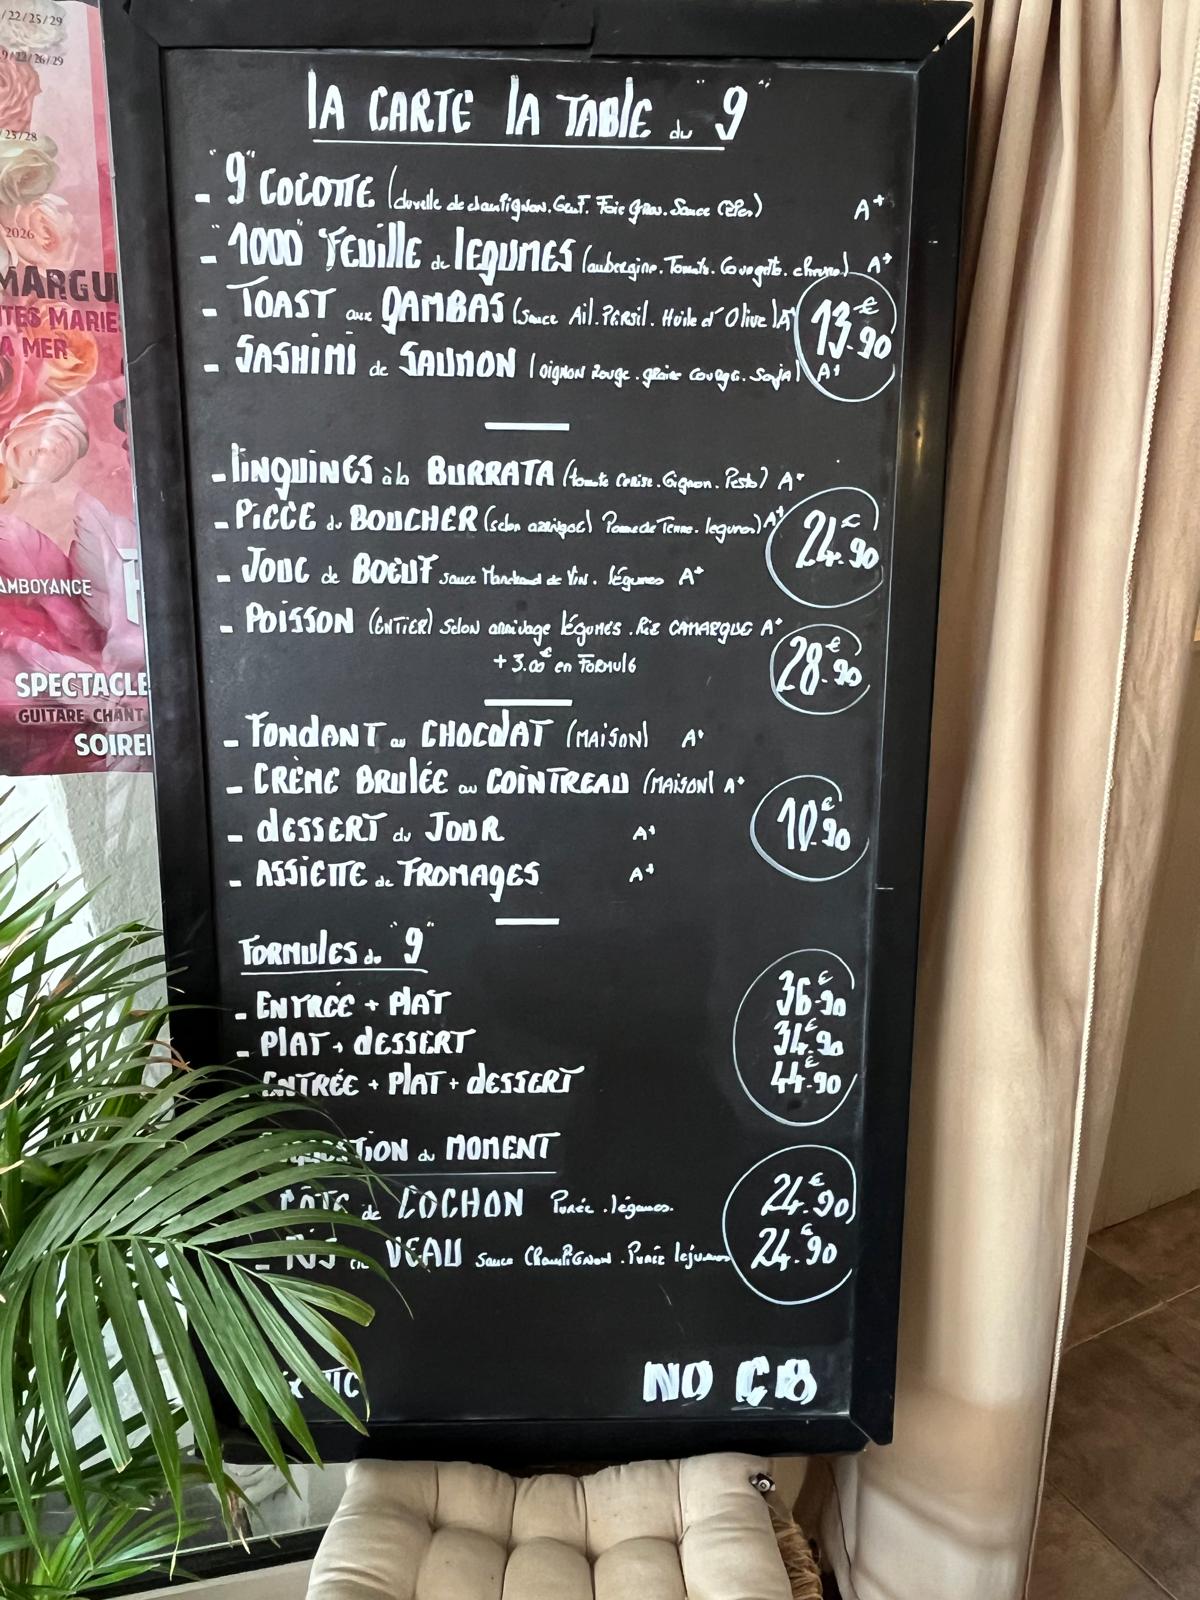 /22/25/29
9/22/26/29
/25/28
2026
MARGU
TES MARIE
A MER
AMBOYANCE
SPECTACLE
GUITARE CHANT
SOIREE
LA CARTE LA TABLE du "9"
- "9" COCOTTE (duxelle de champignon. Oeuf. Foie Gras. Sauce Cèpes) A+
- "1000" FEUILLE de LEGUMES (aubergine. Tomate. Courgette. chèvre) A+
- TOAST aux GAMBAS (sauce Ail. PERSIL. Huile d'Olive) A+
13€.90
- SASHIMI de SAUMON (OIGNON Rouge. graine Courge. Soja) A+
- LINGUINES à la BURRATA (tomate Cerise. Oignon. Pesto) A+
- PIECE du BOUCHER (selon arrivage) Pomme de Terre. legumes) A+
24€.90
- JOUE de BOEUF sauce Marchand de Vin. légumes A+
- POISSON (ENTIER) Selon arrivage légumes. Riz CAMARGUE A+
+ 3.00€ en FORMULE
28€.90
- FONDANT au CHOCOLAT (MAISON) A+
- CRÈME BRULÉE au COINTREAU (MAISON) A+
10€.90
- DESSERT du JOUR A+
- ASSIETTE de FROMAGES A+
FORMULES du "9"
- ENTRÉE + PLAT 36€.90
- PLAT + DESSERT 34€.90
- ENTRÉE + PLAT + DESSERT 44€.90
du MOMENT
CÔTE de COCHON Purée. légumes. 24€.90
- RIS de VEAU sauce CHAMPIGNON. Purée legumes 24€.90
NO CB